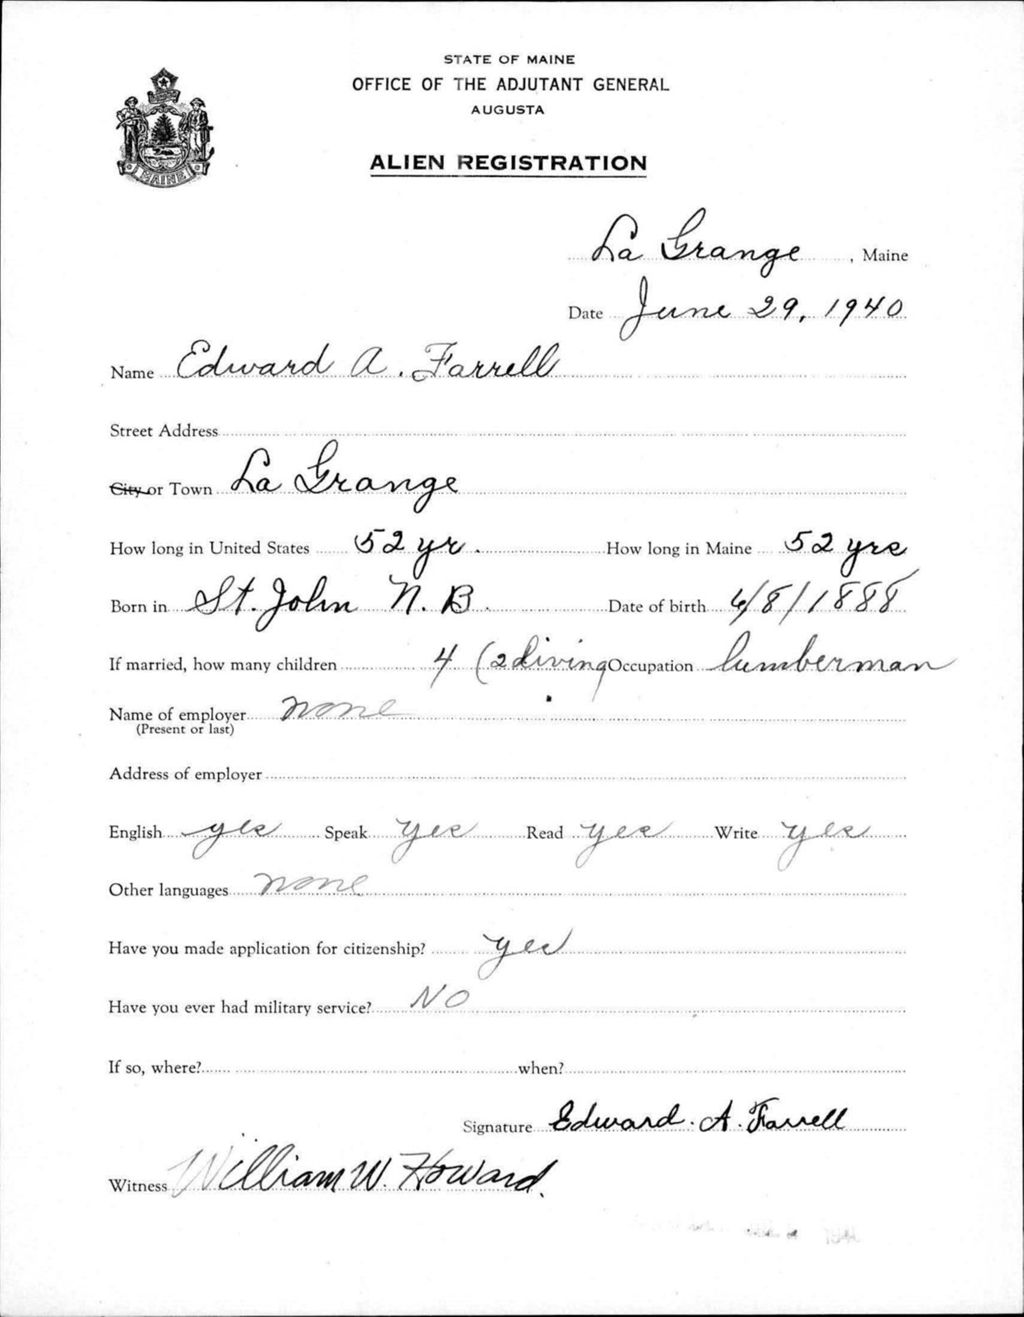 STATE OF MAINE
OFFICE OF THE ADJUTANT GENERAL
AUGUSTA
ALIEN REGISTRATION
MAINE
La Grange, Maine
Date June 29, 1940
Name Edward A. Farrell
Street Address
City or Town La Grange
How long in United States 52 yr. How long in Maine 52 yrs
Born in St. John N. B. Date of birth 6/8/1888
If married, how many children 4 (2 living Occupation lumberman
Name of employer none
(Present or last)
Address of employer
English yes Speak yes Read yes Write yes
Other languages none
Have you made application for citizenship? yes
Have you ever had military service? NO
If so, where? when?
Signature Edward. A. Farrell
Witness William W. Howard.